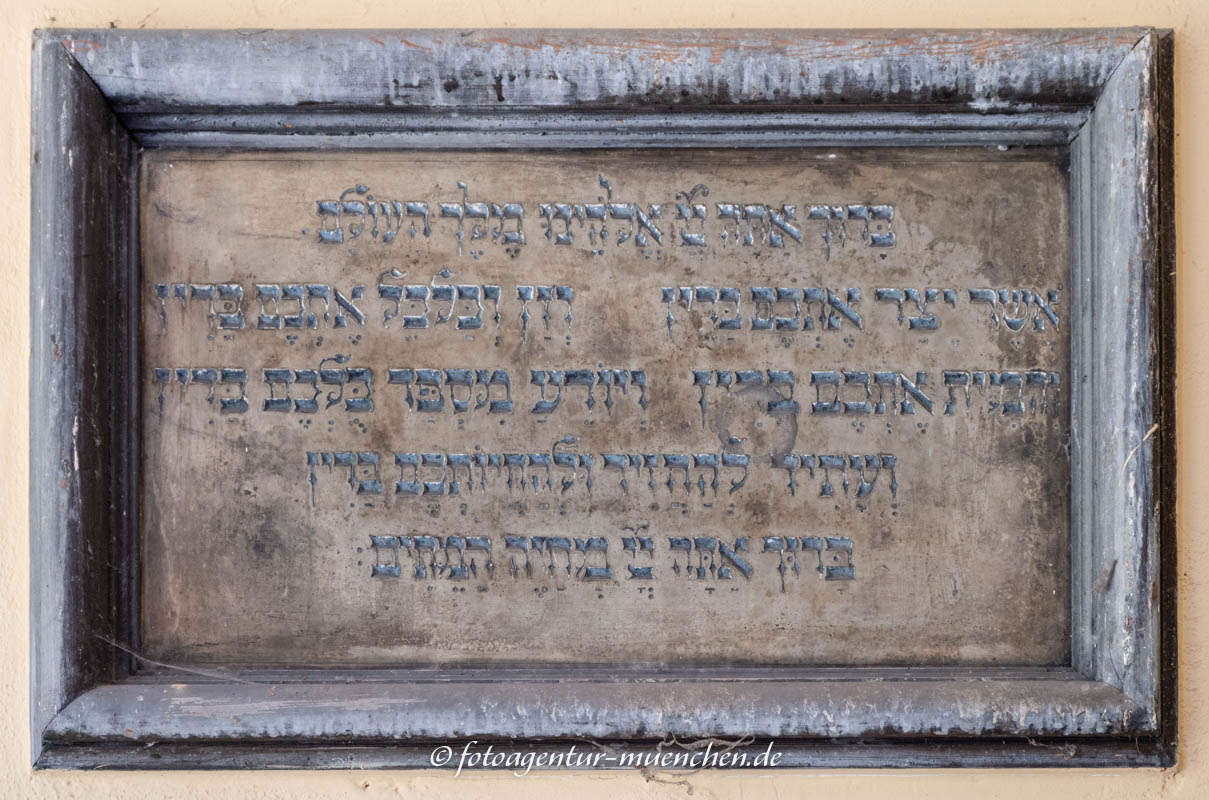 ברוך אתה יי אלהינו מלך העולם
אשר יצר אתכם בדין וזן וכלכל אתכם בדין
והמית אתכם בדין ויודע מספר כלכם בדין
ועתיד להחזיר ולהחיותכם בדין
ברוך אתה יי מחיה המתים
© fotoagentur-muenchen.de